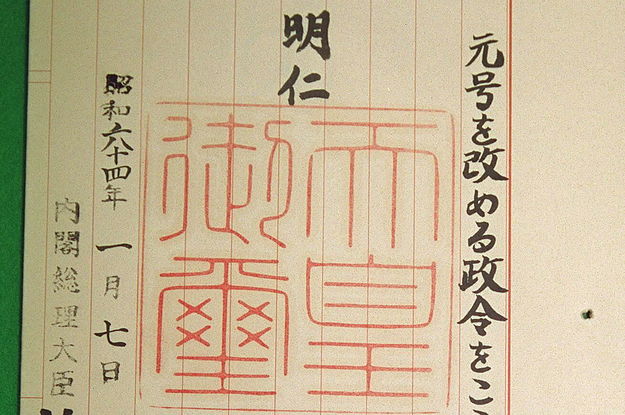 元号を改める政令をこ
明仁
天皇御璽
昭和六十四年一月七日
内閣総理大臣